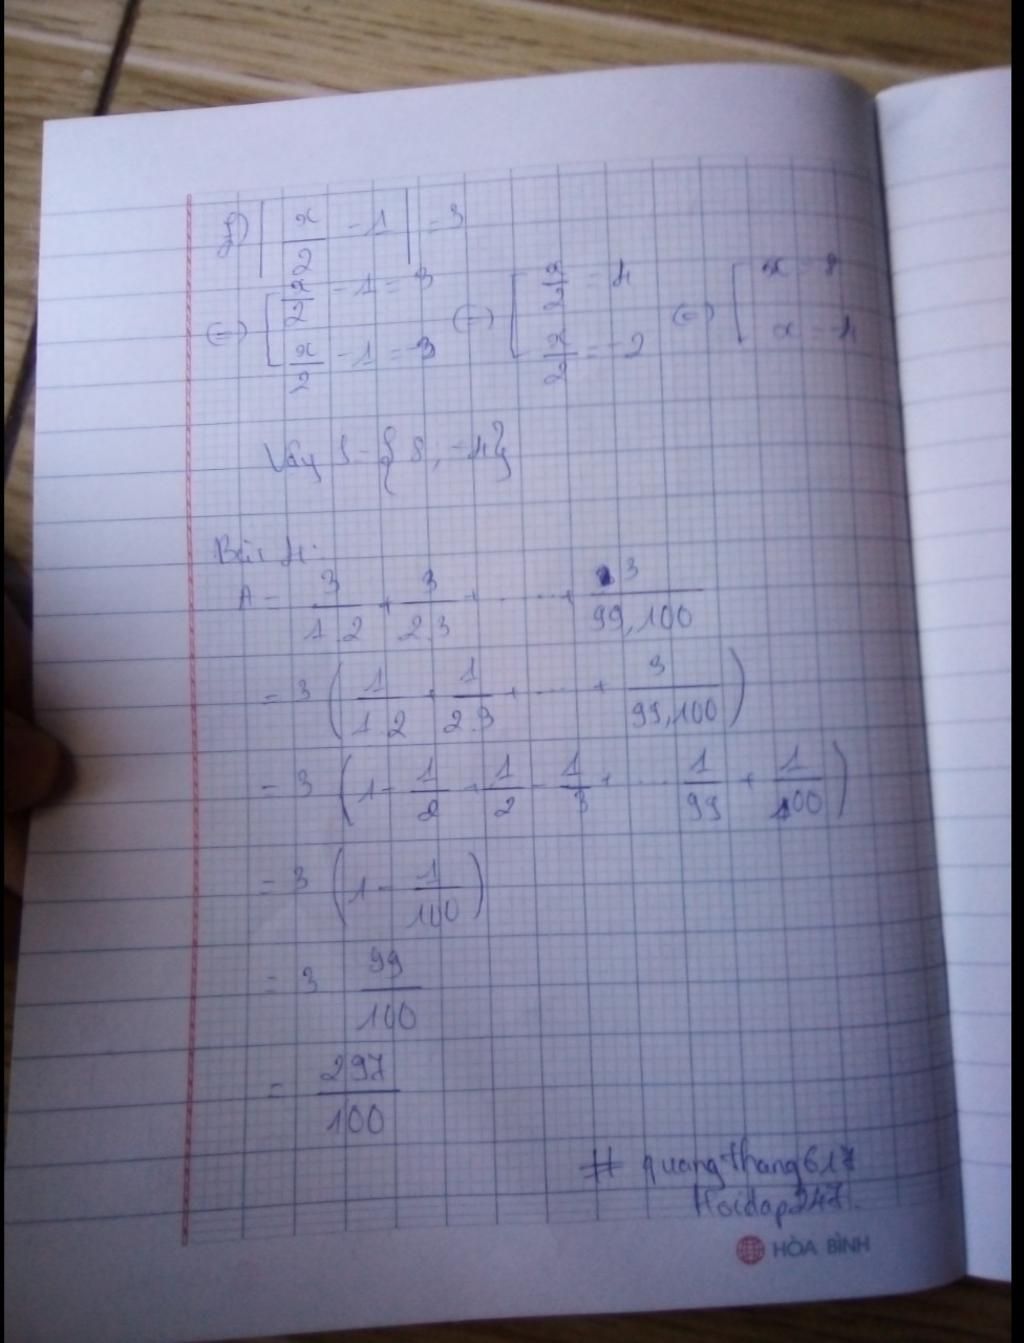 f) | x/2 - 1 | = 3
(=) [ x/2 - 1 = 3 (=) [ x/2 = 4 (=) [ x = 8
x/2 - 1 = -3 x/2 = -2 x = -4
Vậy S = { 8, -4}
Bài 4:
A = 3/1.2 + 3/2.3 + ... + 3/99.100
= 3 ( 1/1.2 + 1/2.3 + ... + 3/99.100 )
= 3 ( 1 - 1/2 + 1/2 - 1/3 + ... 1/99 + 1/100 )
= 3 ( 1 - 1/100 )
= 3 99/100
= 297/100
# quangthang617
Hoidap247.
HÒA BÌNH